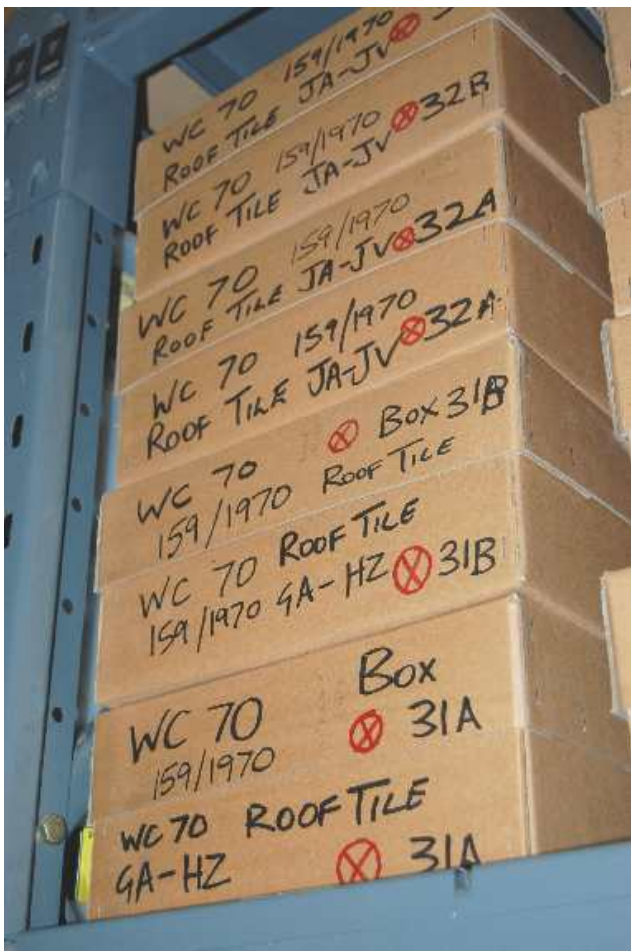 WC 70 159/1970
ROOF TILE JA-JV
WC 70 159/1970 32B
ROOF TILE JA-JV
WC 70 159/1970
ROOF TILE JA-JV 32A
WC 70 159/1970
ROOF TILE JA-JV 32A
WC 70 BOX 31B
159/1970 ROOF TILE
WC 70 ROOF TILE
159/1970 GA-HZ 31B
WC 70 BOX
159/1970 31A
WC 70 ROOF TILE
GA-HZ 31A